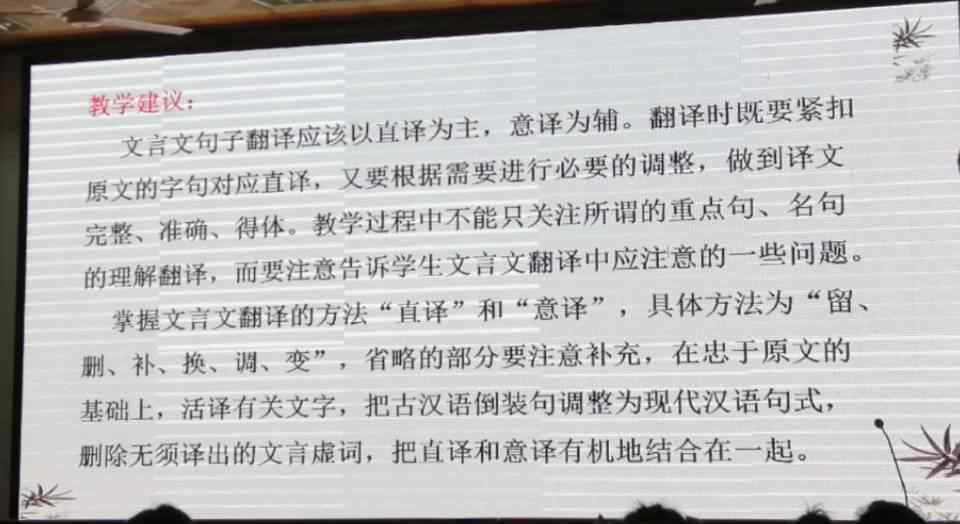 教学建议：
文言文句子翻译应该以直译为主，意译为辅。翻译时既要紧扣
原文的字句对应直译，又要根据需要进行必要的调整，做到译文
完整、准确、得体。教学过程中不能只关注所谓的重点句、名句
的理解翻译，而要注意告诉学生文言文翻译中应注意的一些问题。
掌握文言文翻译的方法“直译”和“意译”，具体方法为“留、
删、补、换、调、变”，省略的部分要注意补充，在忠于原文的
基础上，活译有关文字，把古汉语倒装句调整为现代汉语句式，
删除无须译出的文言虚词，把直译和意译有机地结合在一起。